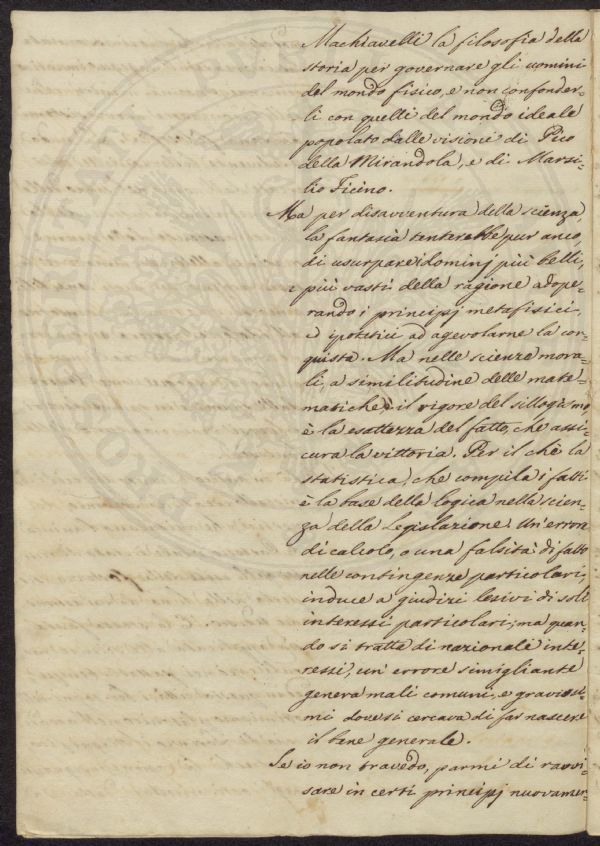 Machiavelli la filosofia della
storia per governare gli uomini
del mondo fisico, e non confonder-
li con quelli del mondo ideale
popolato dalle visioni di Pico
della Mirandola, e di Marsi-
lio Ficino.
Ma per disavventura della scienza,
la fantasia tenterebbe pur anco,
di usurpare i dominj più belli,
e più vasti della ragione adope-
rando i principj metafisici,
ed ipotetici ad agevolarne la con-
quista. Ma nelle scienze mora-
li, a similitudine delle mate-
matiche, il rigore del sillogismo
è la esattezza del fatto, che assi-
cura la vittoria. Per il chè la
statistica, che compila i fatti
è la base della logica nella scien-
za della Legislazione. Un'errore
di calcolo, o una falsità di fatto
nelle contingenze particolari,
induce a giudizi lesivi di soli
interessi particolari; ma quan-
do si tratta di nazionale inte-
ressi, un' errore simigliante
genera mali comuni, e graviosi-
mi dove si cercava di far nascere
il bene generale.
Se io non travedo, parmi di ravvi-
sare in certi principj nuovamen-